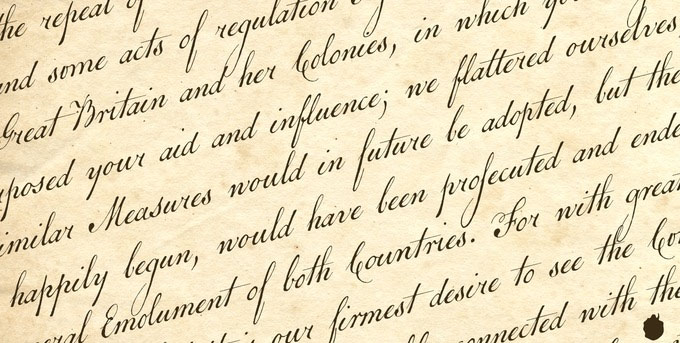 the repeal of
and some acts of regulation
Great Britain and her Colonies, in which you
your aid and influence; we flattered ourselves,
Measures would in future be adopted, but the
happily begun, would have been profecuted and
Emolument of both Countries. For with great
our firmest desire to see the
connected with the